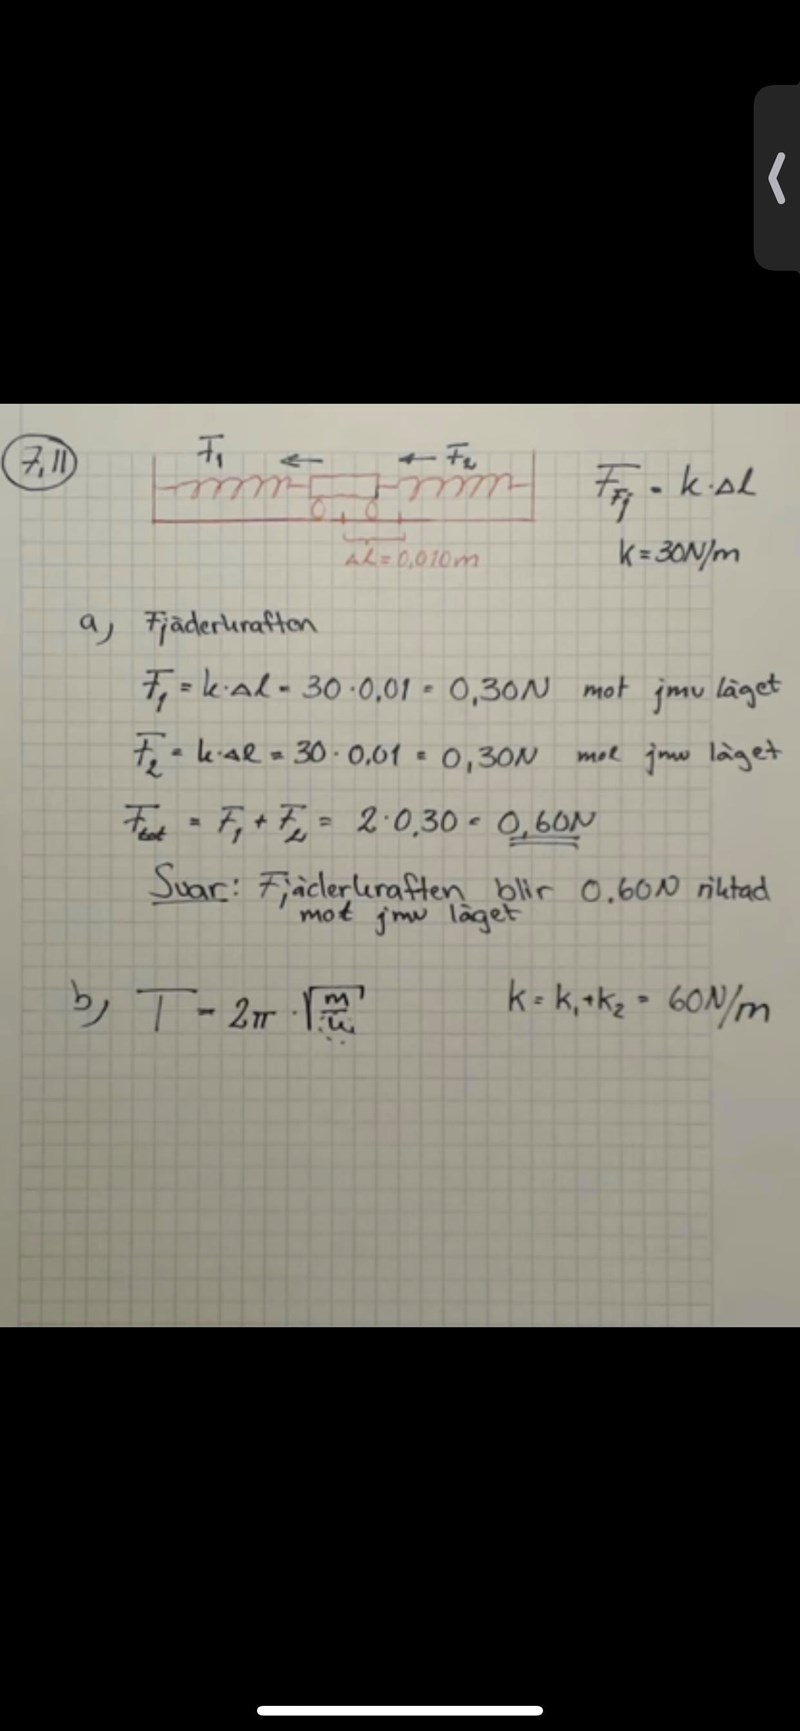 7,11
F₁ F₂
F_Fj = k · Δl
k = 30N/m
Δl = 0,010m
a) Fjäderkraften
F₁ = k · Δl = 30 · 0,01 = 0,30N mot jmv läget
F₂ = k · Δl = 30 · 0,01 = 0,30N mot jmv läget
F_tot = F₁ + F₂ = 2 · 0,30 = 0,60N
Svar: Fjäderkraften blir 0.60N riktad
mot jmv läget
b) T = 2π · √(m/k) k = k₁ + k₂ = 60N/m